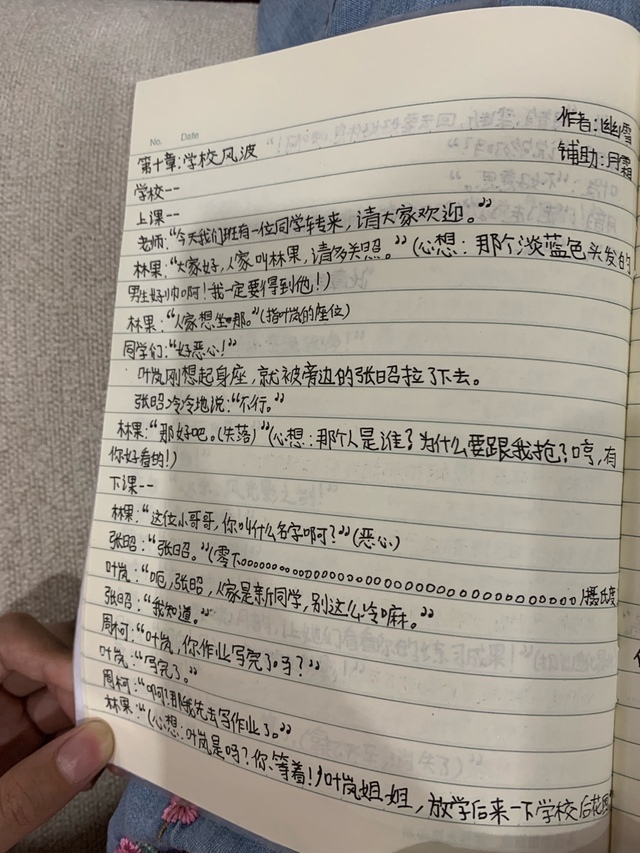 No. Date
作者:幽雪
第十章:学校风波
辅助:月霜
学校--
上课--
老师:“今天我们班有一位同学转来,请大家欢迎。”
林果:“大家好,人家叫林果,请多关照。”(心想:那个淡蓝色头发的
男生好帅啊!我一定要得到他!)
林果:“人家想坐那。”(指叶岚的座位)
同学们:“好恶心!”
叶岚刚想起身座,就被旁边的张昭拉了下去。
张昭冷冷地说:“不行。”
林果:“那好吧。(失落)”(心想:那个人是谁?为什么要跟我抢?哼,有
你好看的!)
下课--
林果:“这位小哥哥,你叫什么名字啊?”(恶心)
张昭:“张昭。”(零下。。。。。。。。。。。。。。。。。。。。。。。。。。。。。。。。。。摄氏度
叶岚:“呃,张昭,人家是新同学,别这么冷嘛。”
张昭:“我知道。”
周柯:“叶岚,你作业写完了吗?”
叶岚:“写完了。”
周柯:“啊?那我先去写作业了。”
林果:“(心想:叶岚是吗?你等着!)叶岚姐姐,放学后来一下学校后花园